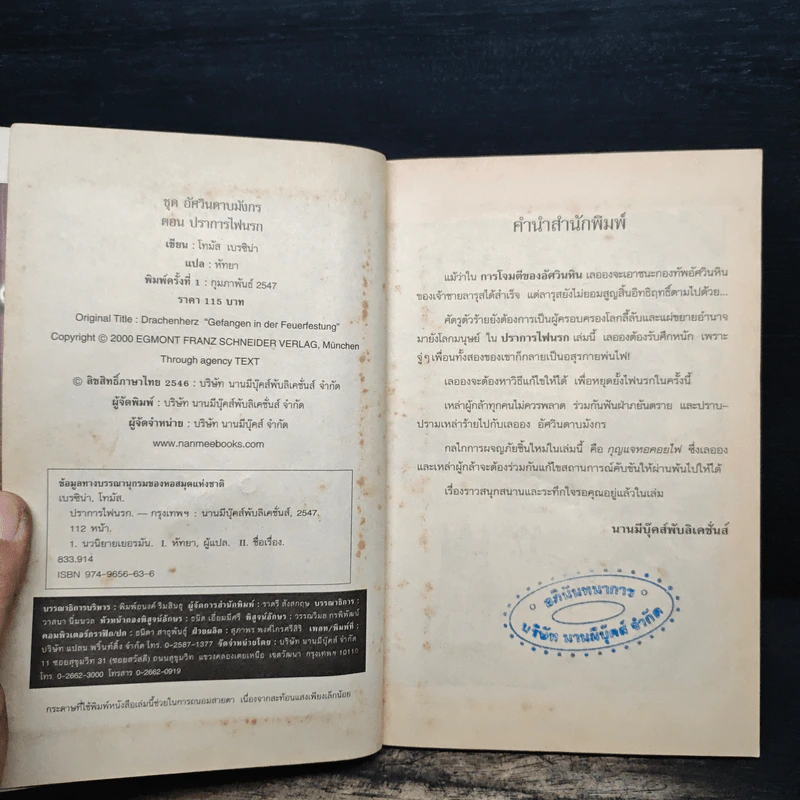 ชุด อัศวินดาบมังกร
ตอน ปราการไฟนรก
เขียน : โทมัส เบรซิน่า
แปล : หัทยา
พิมพ์ครั้งที่ 1 : กุมภาพันธ์ 2547
ราคา 115 บาท
Original Title : Drachenherz "Gefangen in der Feuerfestung"
Copyright © 2000 EGMONT FRANZ SCHNEIDER VERLAG, München
Through agency TEXT
© ลิขสิทธิ์ภาษาไทย 2546 : บริษัท นานมีบุ๊คส์พับลิเคชั่นส์ จำกัด
ผู้จัดพิมพ์ : บริษัท นานมีบุ๊คส์พับลิเคชั่นส์ จำกัด
ผู้จัดจำหน่าย : บริษัท นานมีบุ๊คส์ จำกัด
www.nanmeebooks.com
ข้อมูลทางบรรณานุกรมของหอสมุดแห่งชาติ
เบรซิน่า, โทมัส.
ปราการไฟนรก. — กรุงเทพฯ : นานมีบุ๊คส์พับลิเคชั่นส์, 2547.
112 หน้า.
1. นวนิยายเยอรมัน. I. หัทยา, ผู้แปล. II. ชื่อเรื่อง.
833.914
ISBN 974-9656-63-6
บรรณาธิการบริหาร : พิมพ์อนงค์ ริมสินธุ ผู้จัดการสำนักพิมพ์ : ราตรี สังสกฤษ บรรณาธิการ :
วาสนา นิ่มนวล หัวหน้ากองพิสูจน์อักษร : ธนิต เอี่ยมมีศรี พิสูจน์อักษร : วรรณวิมล
คอมพิวเตอร์กราฟิค/ปก : ธนิดา สาธุพันธุ์ ฝ่ายผลิต : สุภาพร พงศ์ไกรศรีสิริ เพลท/พิมพ์ที่ :
บริษัท แปลน พริ้นท์ติ้ง จำกัด โทร. 0-2587-1377 จัดจำหน่ายโดย : บริษัท นานมีบุ๊คส์ จำกัด
11 ซอยสุขุมวิท 31 (ซอยสวัสดี) ถนนสุขุมวิท แขวงคลองเตยเหนือ เขตวัฒนา กรุงเทพฯ 10110
โทร. 0-2662-3000 โทรสาร 0-2662-0919
กระดาษที่ใช้พิมพ์หนังสือเล่มนี้ช่วยในการถนอมสายตา เนื่องจากสะท้อนแสงเพียงเล็กน้อย
คำนำสำนักพิมพ์
แม้ว่าใน การโจมตีของอัศวินหิน เลอองจะเอาชนะกองทัพอัศวินหิน
ของเจ้าชายลารุสได้สำเร็จ แต่ลารุสยังไม่ยอมสูญสิ้นอิทธิฤทธิ์ตามไปด้วย...
คัตรูตัวร้ายยังต้องการเป็นผู้ครอบครองโลกลี้ลับและแผ่ขยายอำนาจ
มายังโลกมนุษย์ ใน ปราการไฟนรก เล่มนี้ เลอองต้องรับศึกหนัก เพราะ
จู่ๆ เพื่อนทั้งสองของเขาก็กลายเป็นอสุรกายพ่นไฟ!
เลอองจะต้องหาวิธีแก้ไขให้ได้ เพื่อหยุดยั้งไฟนรกในครั้งนี้
เหล่าผู้กล้าทุกคนไม่ควรพลาด ร่วมกันฟันฝ่าภยันตราย และปราบ-
ปรามเหล่าร้ายไปกับเลออง อัศวินดาบมังกร
กลไกการผจญภัยชิ้นใหม่ในเล่มนี้ คือ กุญแจหอคอยไฟ ซึ่งเลออง
และเหล่าผู้กล้าจะต้องร่วมกันแก้ไขสถานการณ์คับขันให้ผ่านพ้นไปให้ได้
เรื่องราวสนุกสนานและระทึกใจรอคุณอยู่แล้วในเล่ม
นานมีบุ๊คส์พับลิเคชั่นส์
อภินันทนาการ
บริษัท นานมีบุ๊คส์ จำกัด